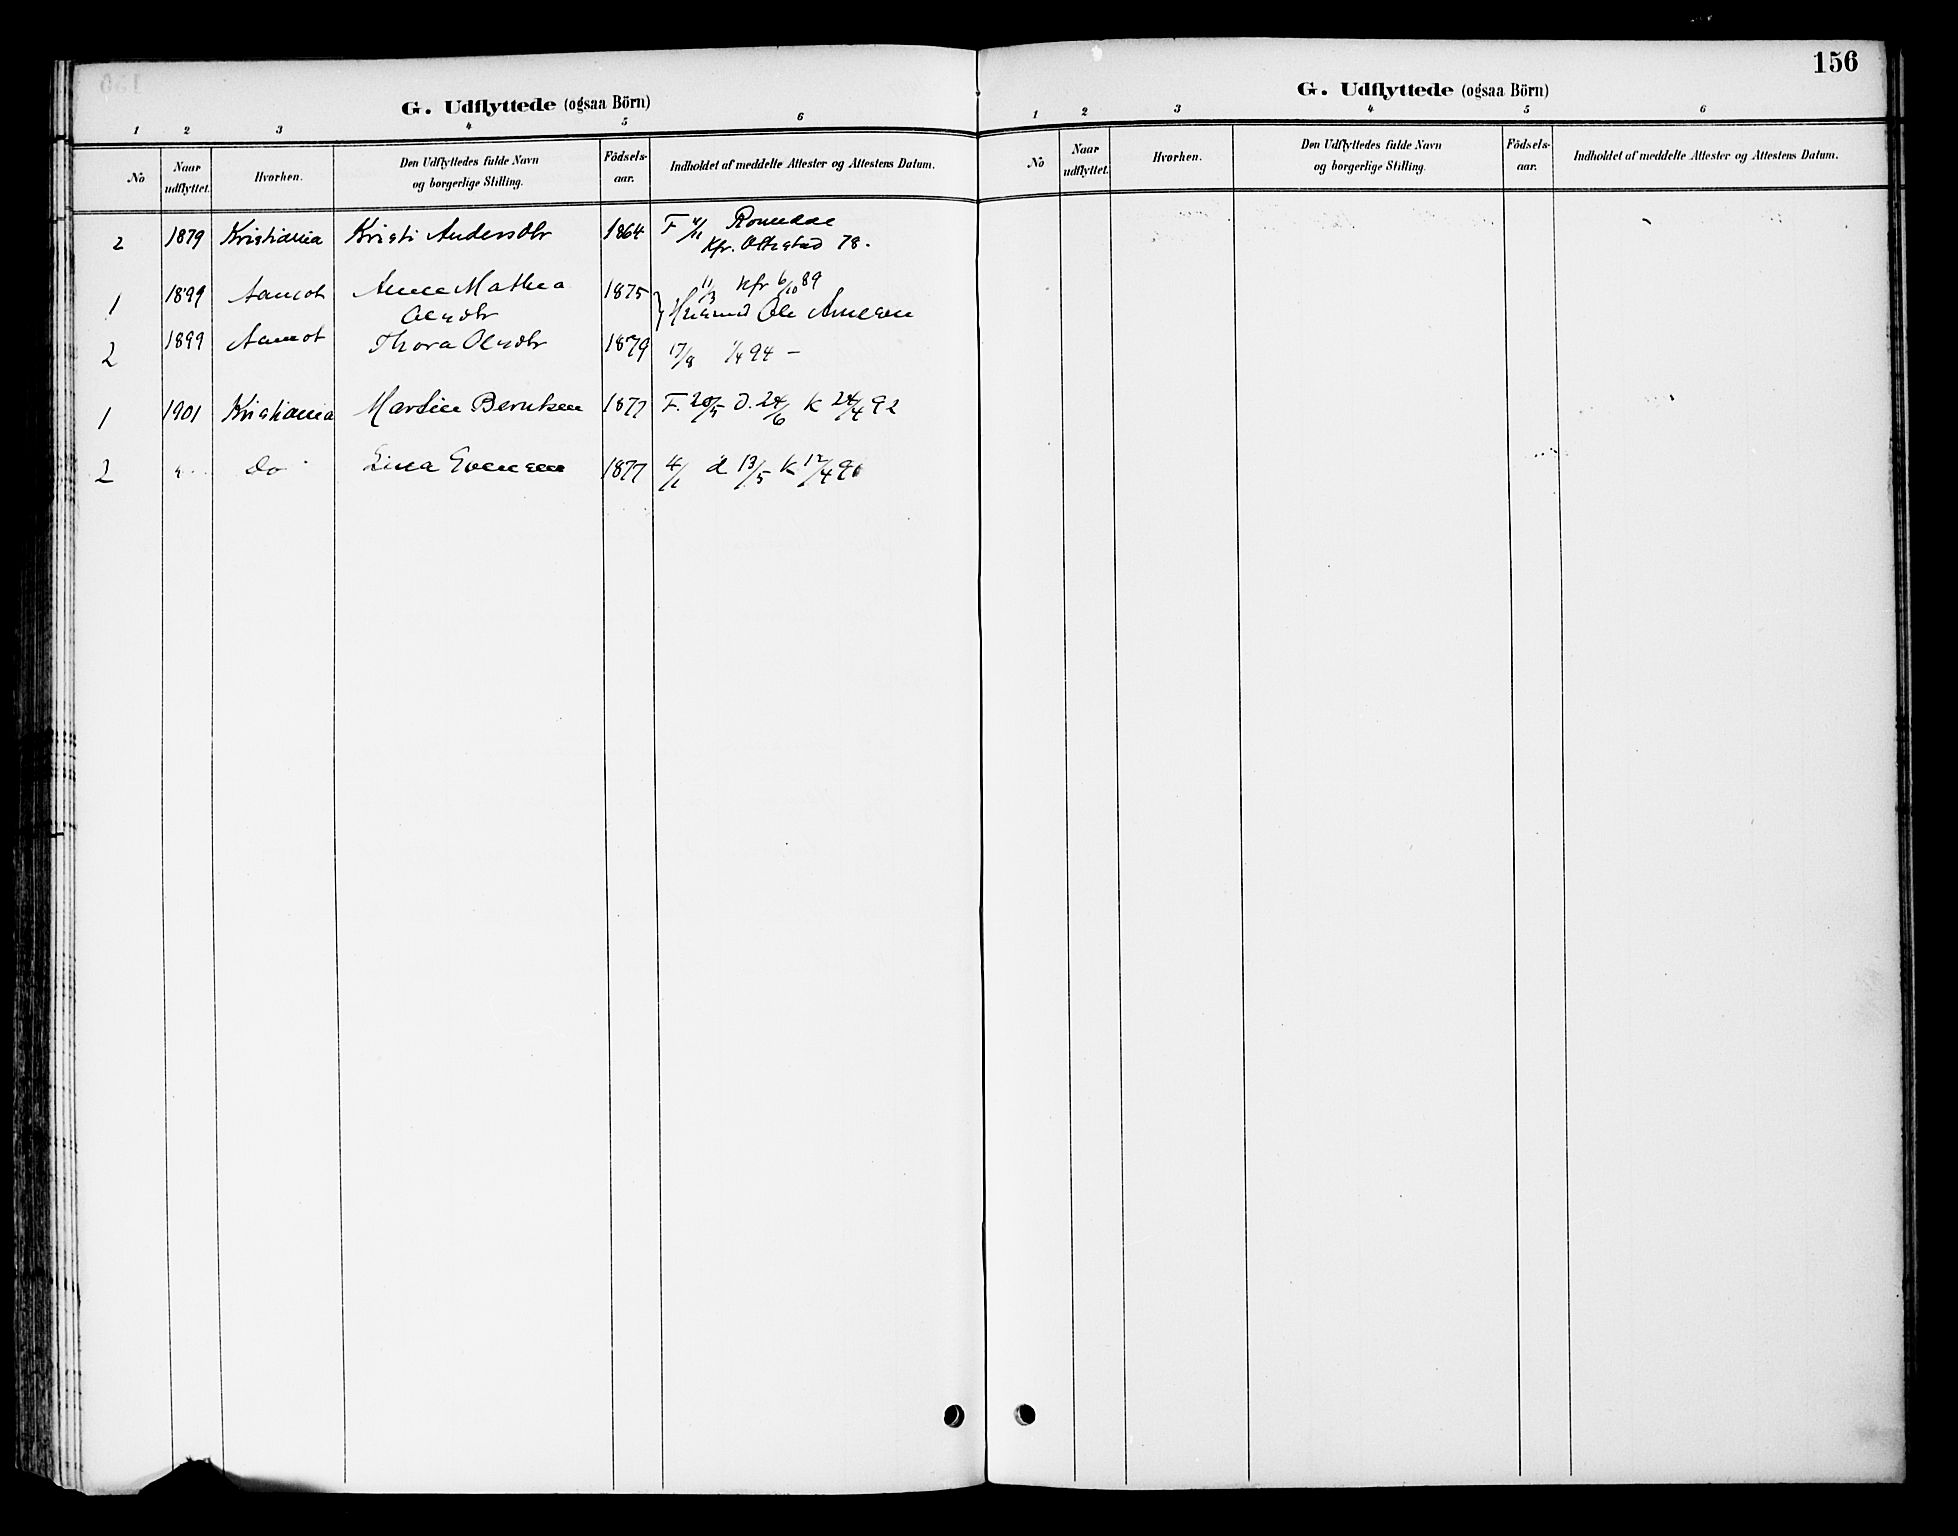 156
G. Udflyttede (ogsaa Börn)
1 2 3 4 5 6
No Naar udflyttet. Hvorhen. Den Udflyttedes fulde Navn og borgerlige Stilling. Födsels-aar. Indholdet af meddelte Attester og Attestens Datum.
2 1879 Kristiania Kristi Andersdtr 1864 F 4/11 Romedal
Kfr. Ottestad 78.
1 1899 Aamot Anne Mathea 1875 11/3 Kfr 6/10 89
Olesdtr Ole Arnesen
2 1899 Aamot Thora Olesdtr 1879 17/8 1/4 94 —
1 1901 Kristiania Martin Berntsen 1877 F. 20/5 D. 24/6 K 24/4 92
2 do Lina Evensen 1877 4/1 d 13/5 K 12/4 91
G. Udflyttede (ogsaa Börn)
1 2 3 4 5 6
No Naar udflyttet. Hvorhen. Den Udflyttedes fulde Navn og borgerlige Stilling. Födsels-aar. Indholdet af meddelte Attester og Attestens Datum.